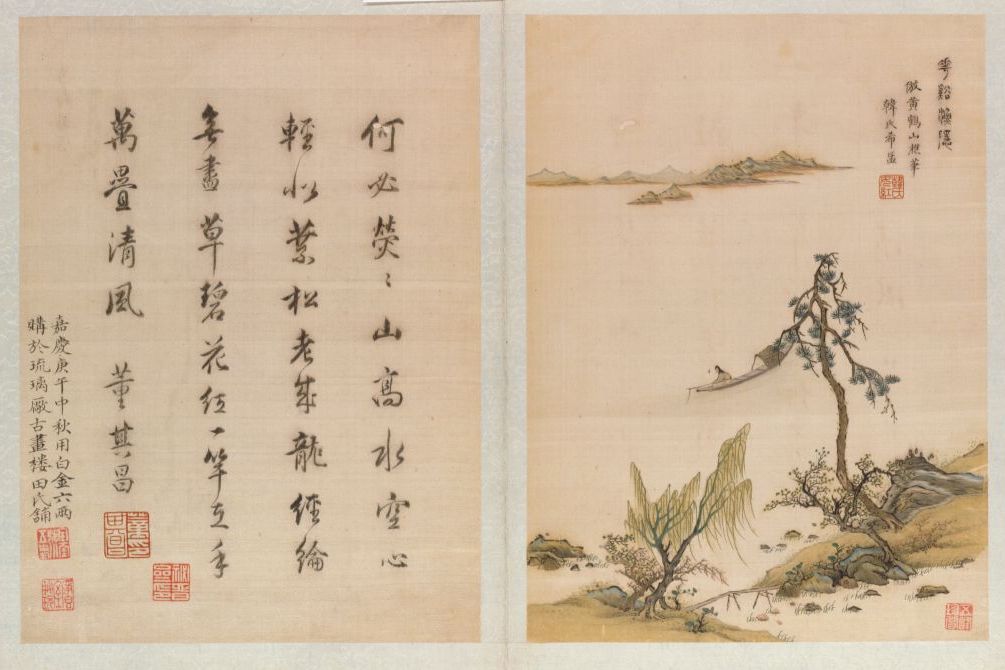 花谿漁隱
倣黃鶴山樵筆
韓氏希孟
何必熒〻山高水空心
輕似葉松老成龍經綸
無盡草碧花紅一竿在手
萬疊清風 董其昌
嘉慶庚午中秋用白金六兩
購於琉璃廠古畫樓田氏舖